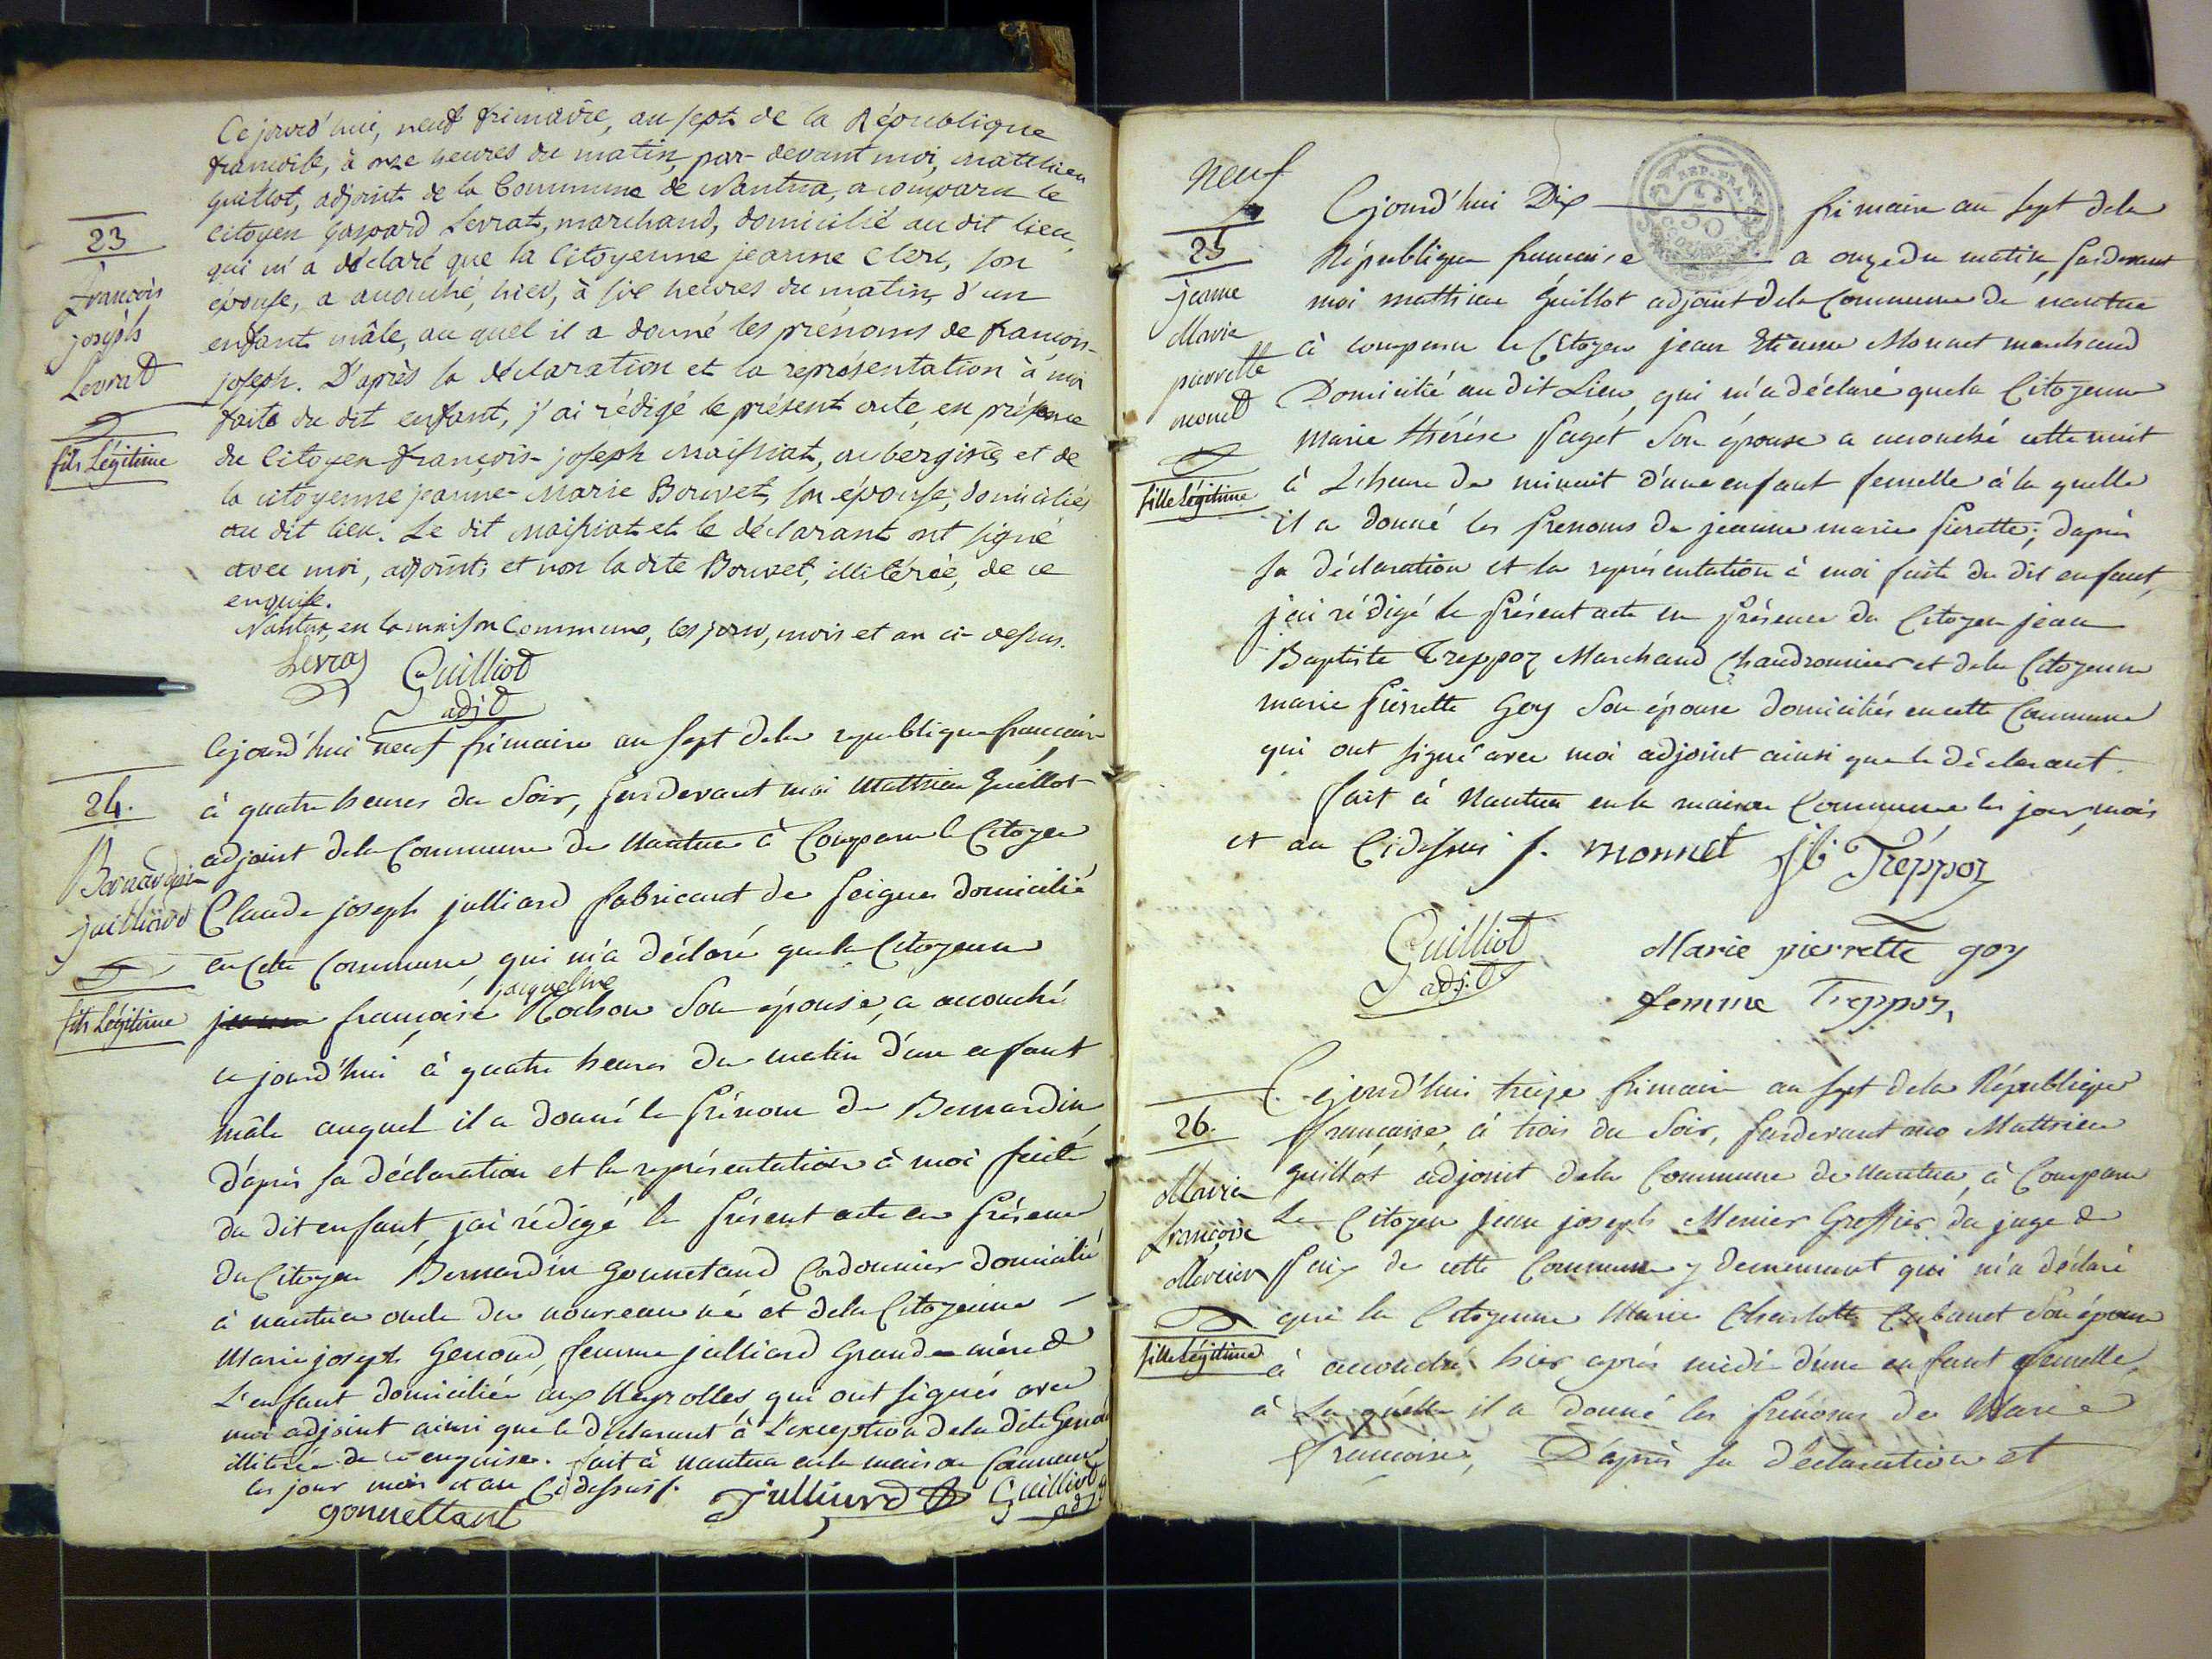 23
François
joseph
Levrat
fils Légitime
Ce jourd'hui, neuf frimaire, an sept de la République
françoise, à onze heures du matin, par-devant moi, matthieu
guillot, adjoint de la Commune de Nantua, a comparu le
citoyen gaspard Levrat, marchand, domicilié au dit lieu,
qui m'a déclaré que la Citoyenne jeanne Clerc, son
épouse, a accouché, hier, à six heures du matin, d'un
enfant mâle, au quel il a donné les prénoms de françois-
joseph. D'après la déclaration et la représentation à moi
faite du dit enfant, j'ai rédigé le présent acte, en présence
du Citoyen françois-joseph Maissiat, aubergiste, et de
la citoyenne jeanne-Marie Bouvet, son épouse, domiciliés
au dit lieu. Le dit Maissiat et le déclarant ont signé
avec moi, adjoint, et non la dite Bouvet, illitérée, de ce
enquise.
Nantua, en la maison Commune, les jour, mois et an ci-dessus.
Levrat Guilliot
adjt
24.
Bernardin
juilliard
fils Légitime
Cejourd'hui neuf frimaire an sept dela republique française
à quatre heures du Soir, pardevant moi Matthieu Guillot
adjoint dela Commune de Nantua à Comparu le Citoyen
Claude joseph julliard fabricant de peignes domicilié
en Cette Commune, qui m'a déclaré quela Citoyenne
jacqueline
françoise Rochon Son épouse, a accouché
ce jourd'hui à quatre heures du matin d'un enfant
mâle auquel il a donné le prénom de Bernardin,
d'après sa déclaration et la représentation à moi faite
du dit enfant, j'ai rédigé le présent acte en présence
du Citoyen Bernardin gonnetand Cordonnier domicilié
à nantua oncle du nouveau né et dela Citoyenne
Marie joseph Genoud, femme julliard Grande mère de
L'enfant domiciliée aux Neyrolles, qui ont signés avec
moi adjoint ainsi que le déclarant à L'exception dela dite Genoud
illitérée de ce enquise. fait à nantua en la maison Commune
les jour mois et an Cidessus ./.
gonnettant Julliard Guilliot
adjt
neuf
25
jeanne
Marie
pierrette
monet
fille Légitime
Cejourd'hui Dix frimaire an sept dela
REP. FRA.
République francaise a onze du matin, pardevant
moi matthieu Guillot adjoint dela Commune de nantua
à comparu le Citoyen jean Etienne Monnet marchand
Domicilié au dit Lieu, qui m'a déclaré quela Citoyenne
Marie thérése paget Son épouse a accouché cette nuit
à L'heure de minuit d'une enfant femelle à la quelle
il a donné les prenoms de jeanne marie pierette; dapres
sa déclaration et la représentation à moi faite du dit enfant,
j'ai rédigé le présent acte en présence du Citoyen jean
Baptiste Treppoz Marchand Chaudronnier et dela Citoyenne
marie pierrette Goy Son épouse domiciliés en cette Commune
qui ont signé avec moi adjoint ainsi que le déclarant.
fait à Nantua en la maison Commune les jour, mois
et an Cidessus ./. monnet jb Tréppoz
Guilliot
adj.t
Marie pierrette goy
femme Treppoz
26.
Marie
françoise
Mercier
fille Légitime
Cejourd'hui treize frimaire an sept dela République
française, à trois du Soir, pardevant moi Matthieu
guillot adjoint dela Commune de nantua, à Comparu
Le Citoyen Jean joseph Mercier Greffier du juge de
paix de cette Commune y demeurant qui m'a déclaré
que la Citoyenne Marie Charlotte Cabanet Son épouse
à accouché hier après midi d'une enfant femelle,
à La quelle il a donné les prénoms de Marie
francoise, D'après sa déclaration et